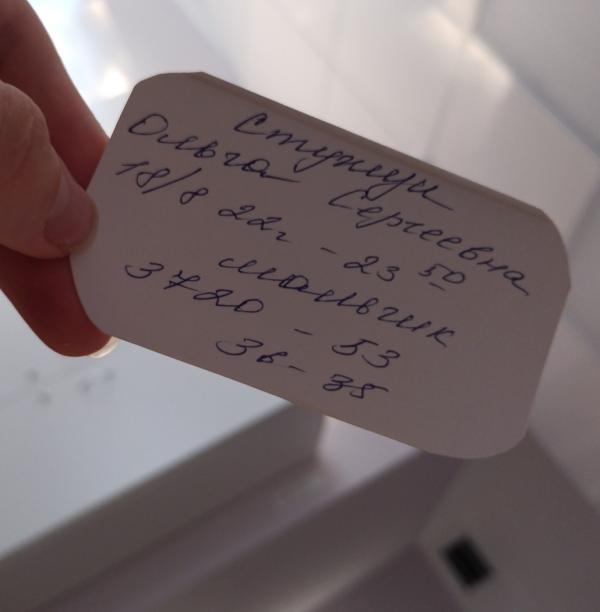 Ольга Сергеевна
18/8 22г - 23 50
мальчик
3720 - 53
3в - 35